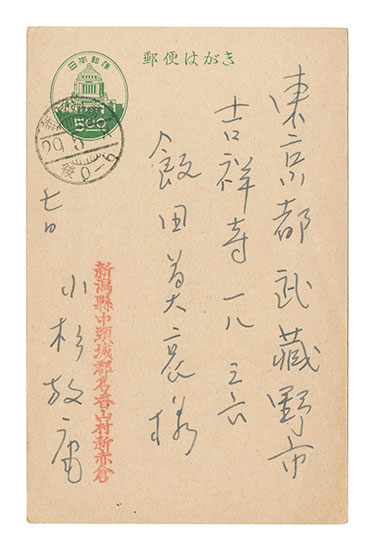 郵便はがき
日本郵便
500
東京都武藏野市
吉祥寺一八三六
飯田莫哀様
新潟縣中頸城郡名香山村新赤倉
七日
小杉放庵
後0-6